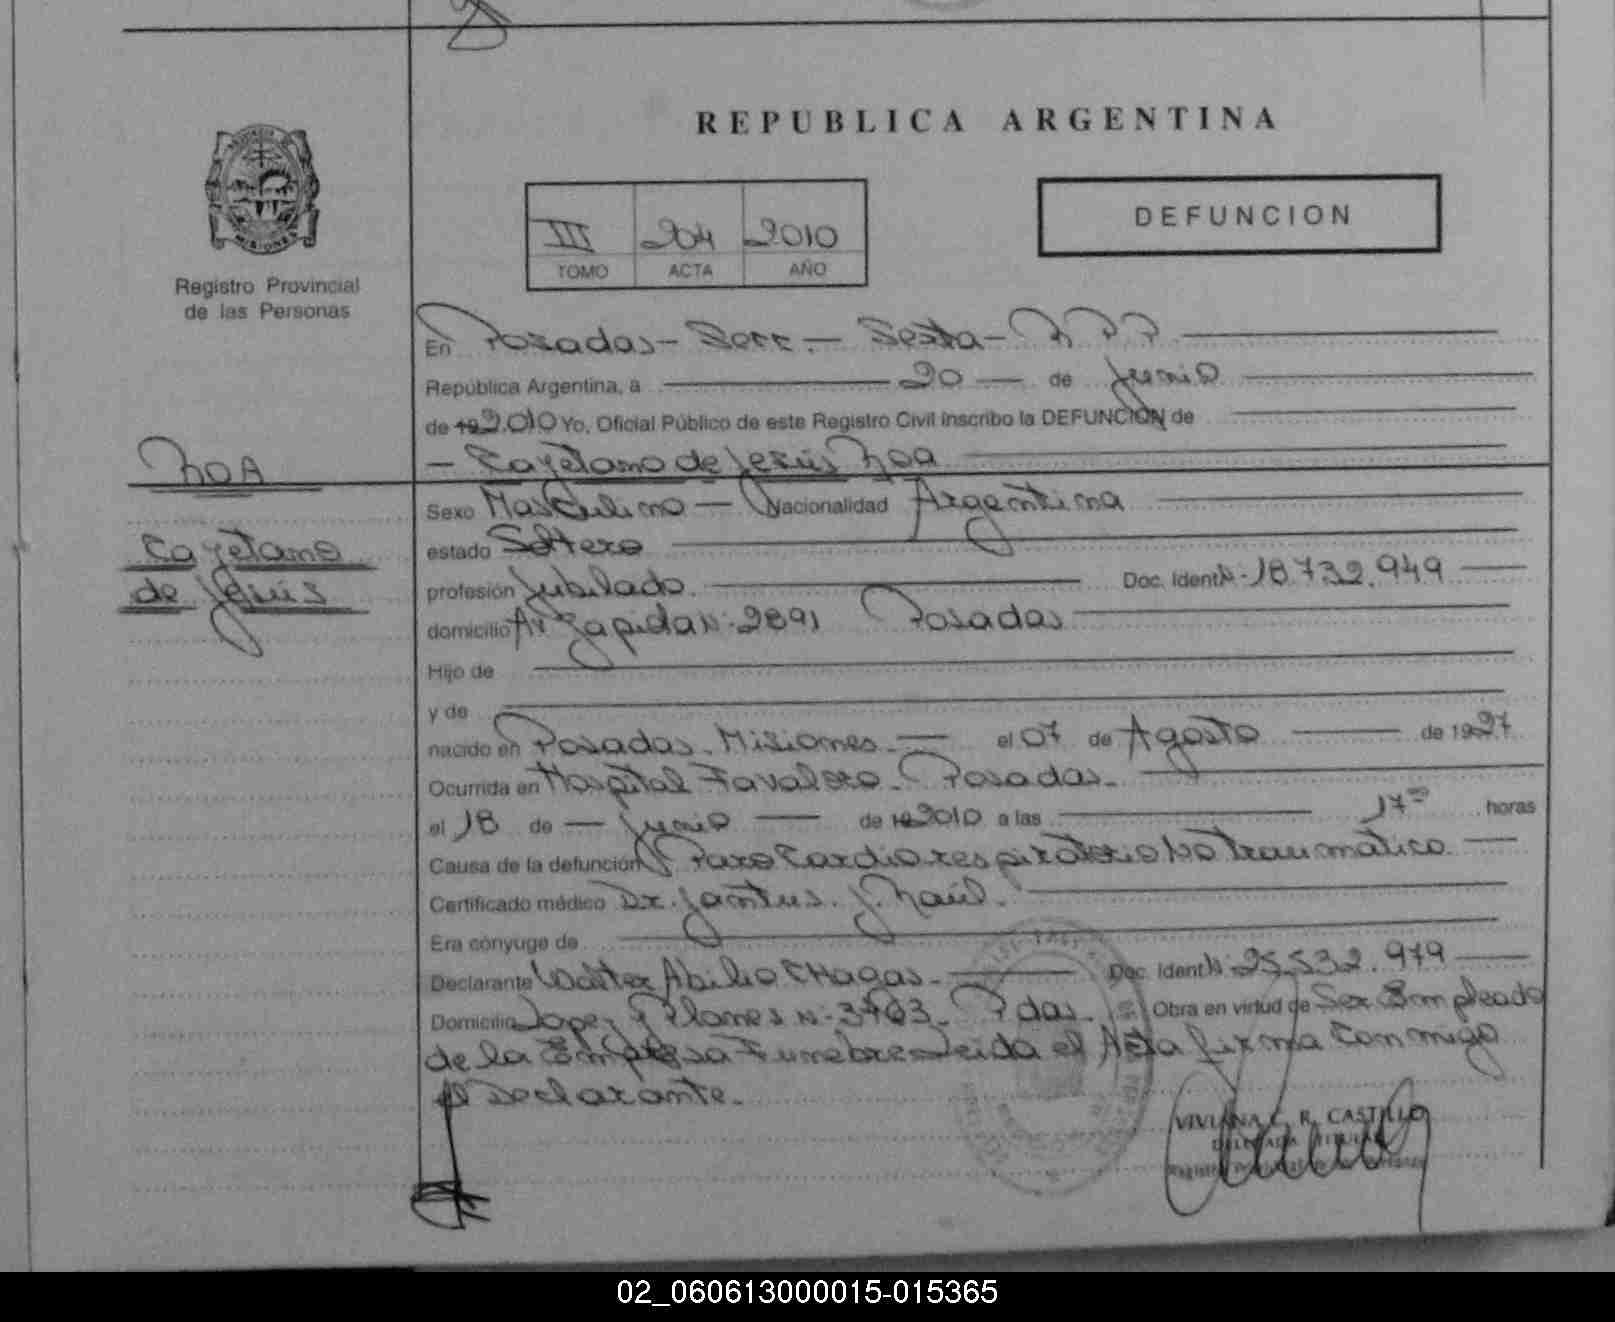 REPUBLICA ARGENTINA
MISIONES
Registro Provincial
de las Personas
III 204 2010
TOMO ACTA AÑO
DEFUNCION
En Posadas - Secc. - Sexta - R P P
República Argentina, a 20 de Junio
de 19 2.010 Yo, Oficial Público de este Registro Civil inscribo la DEFUNCION de
- Cayetano de Jesús Roa
ROA
Cayetano
de Jesús
Sexo Masculino - Nacionalidad Argentina
estado Soltero
profesión Jubilado Doc. Ident. N- 18.732.949
domicilio Av Zapida N- 2891 Posadas
Hijo de
y de
nacido en Posadas - Misiones - el 07 de Agosto de 1927
Ocurrida en Hospital Favaloro - Posadas -
el 18 de - Junio - de 19 2010 a las 17 00 horas
Causa de la defunción Paro Cardiorespiratorio No traumático
Certificado médico Dr. Jantus. J. Raúl.
Era cónyuge de
Declarante Walter Abilio CHagas - Doc. Ident. N- 25.532.979
Domicilio Lopez y Planes N- 3703 - Pdas - Obra en virtud de Ser Empleado
de la Empresa Funebre Leida el Acta firma Conmigo
el Declarante.
VIVIANA C. R. CASTILLO
DELEGADA TITULAR
02_060613000015-015365